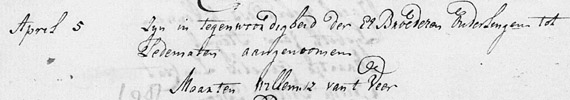 April 5 Zijn in tegenwoordigheid der El Broederen Ouderlingen tot
Ledematen aangenoomen
Maarten Willemsz van t Veer